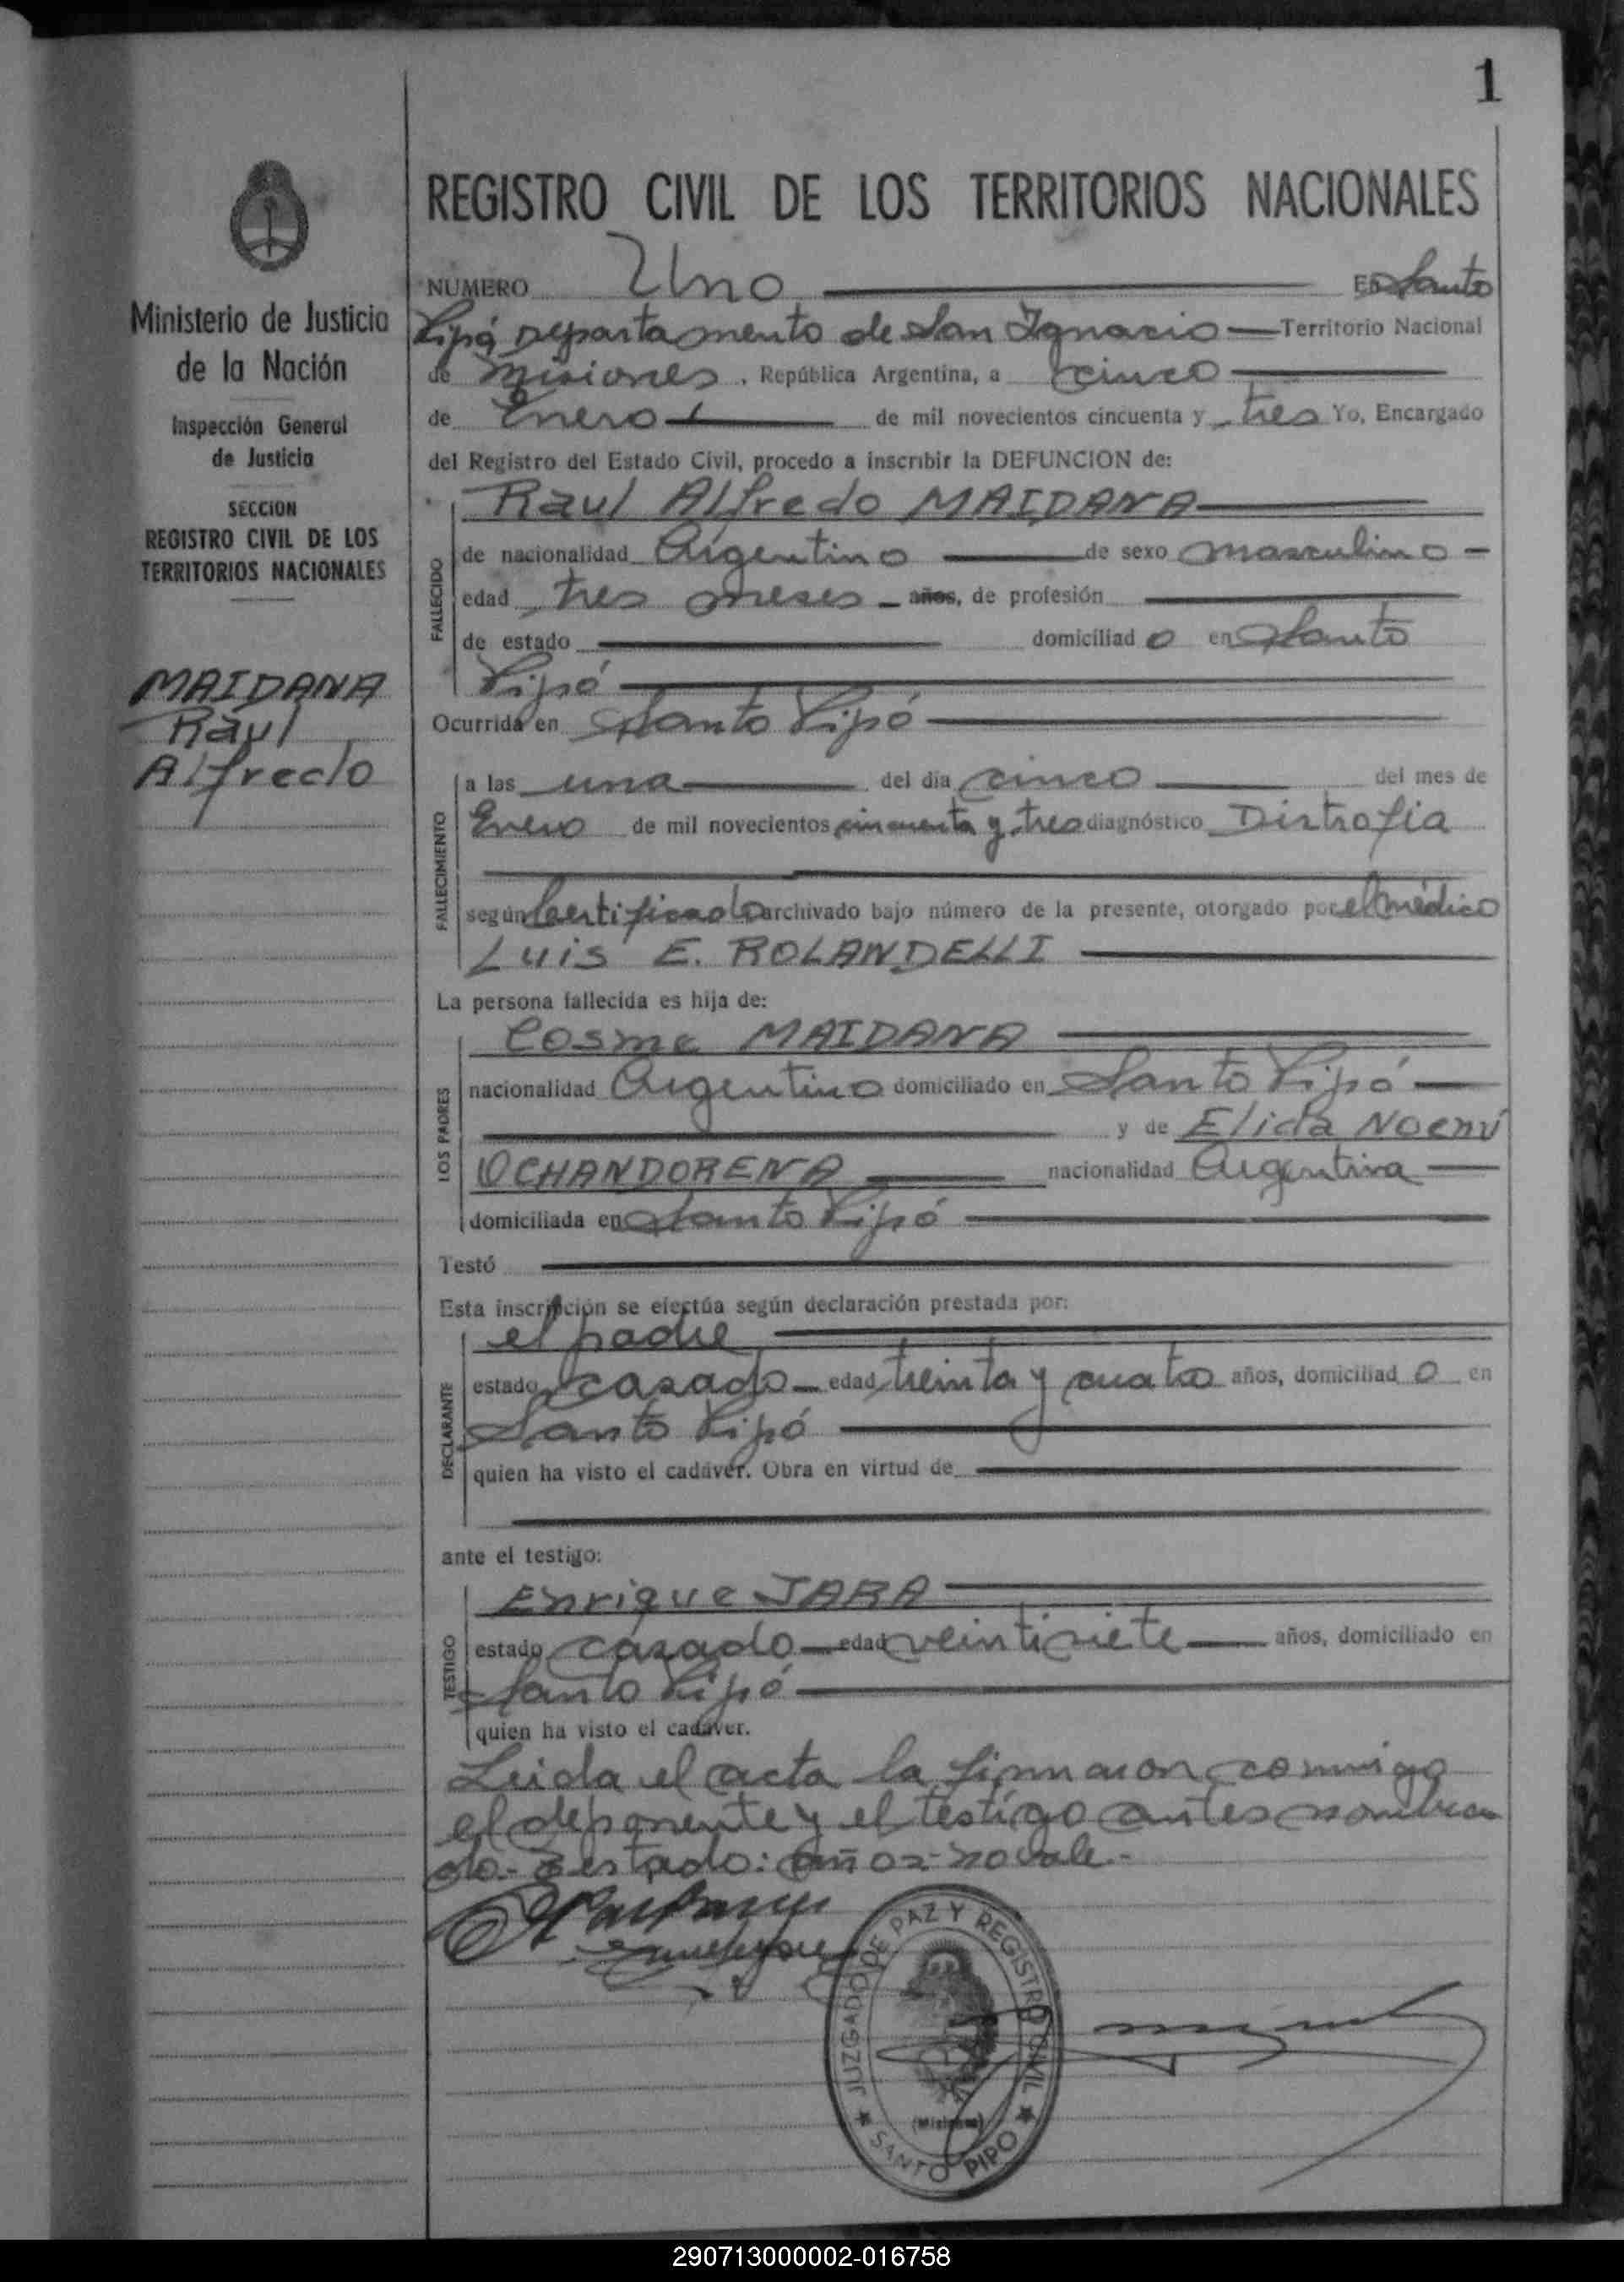 1
REGISTRO CIVIL DE LOS TERRITORIOS NACIONALES
Ministerio de Justicia
de la Nación
Inspección General
de Justicia
SECCION
REGISTRO CIVIL DE LOS
TERRITORIOS NACIONALES
MAIDANA
Raul
Alfredo
NUMERO Uno En Santo
Pipó Departamento de San Ignacio Territorio Nacional
de Misiones, República Argentina, a cinco
de Enero de mil novecientos cincuenta y tres Yo, Encargado
del Registro del Estado Civil, procedo a inscribir la DEFUNCION de:
FALLECIDO
Raul Alfredo MAIDANA
de nacionalidad Argentino de sexo masculino
edad tres meses años, de profesión
de estado domiciliado en Santo
Pipó
Ocurrida en Santo Pipó
FALLECIMIENTO
a las una del día cinco del mes de
Enero de mil novecientos cincuenta y tres diagnóstico Distrofia
según Certificado archivado bajo número de la presente, otorgado por el médico
Luis E. ROLANDELLI
La persona fallecida es hija de:
LOS PADRES
Cosme MAIDANA
nacionalidad Argentino domiciliado en Santo Pipó
y de Elida Noemí
OCHANDORENA nacionalidad Argentina
domiciliada en Santo Pipó
Testó
Esta inscripción se efectúa según declaración prestada por:
DECLARANTE
el padre
estado casado edad treinta y cuatro años, domiciliado en
Santo Pipó
quien ha visto el cadáver. Obra en virtud de
ante el testigo:
TESTIGO
Enrique JARA
estado casado edad veintisiete años, domiciliado en
Santo Pipó
quien ha visto el cadáver.
Leida el acta la firmaron conmigo
el deponente y el testigo antes nombra
do. Testado: años: no vale.-
JUZGADO DE PAZ Y REGISTRO CIVIL
(Misiones)
SANTO PIPO
290713000002-016758